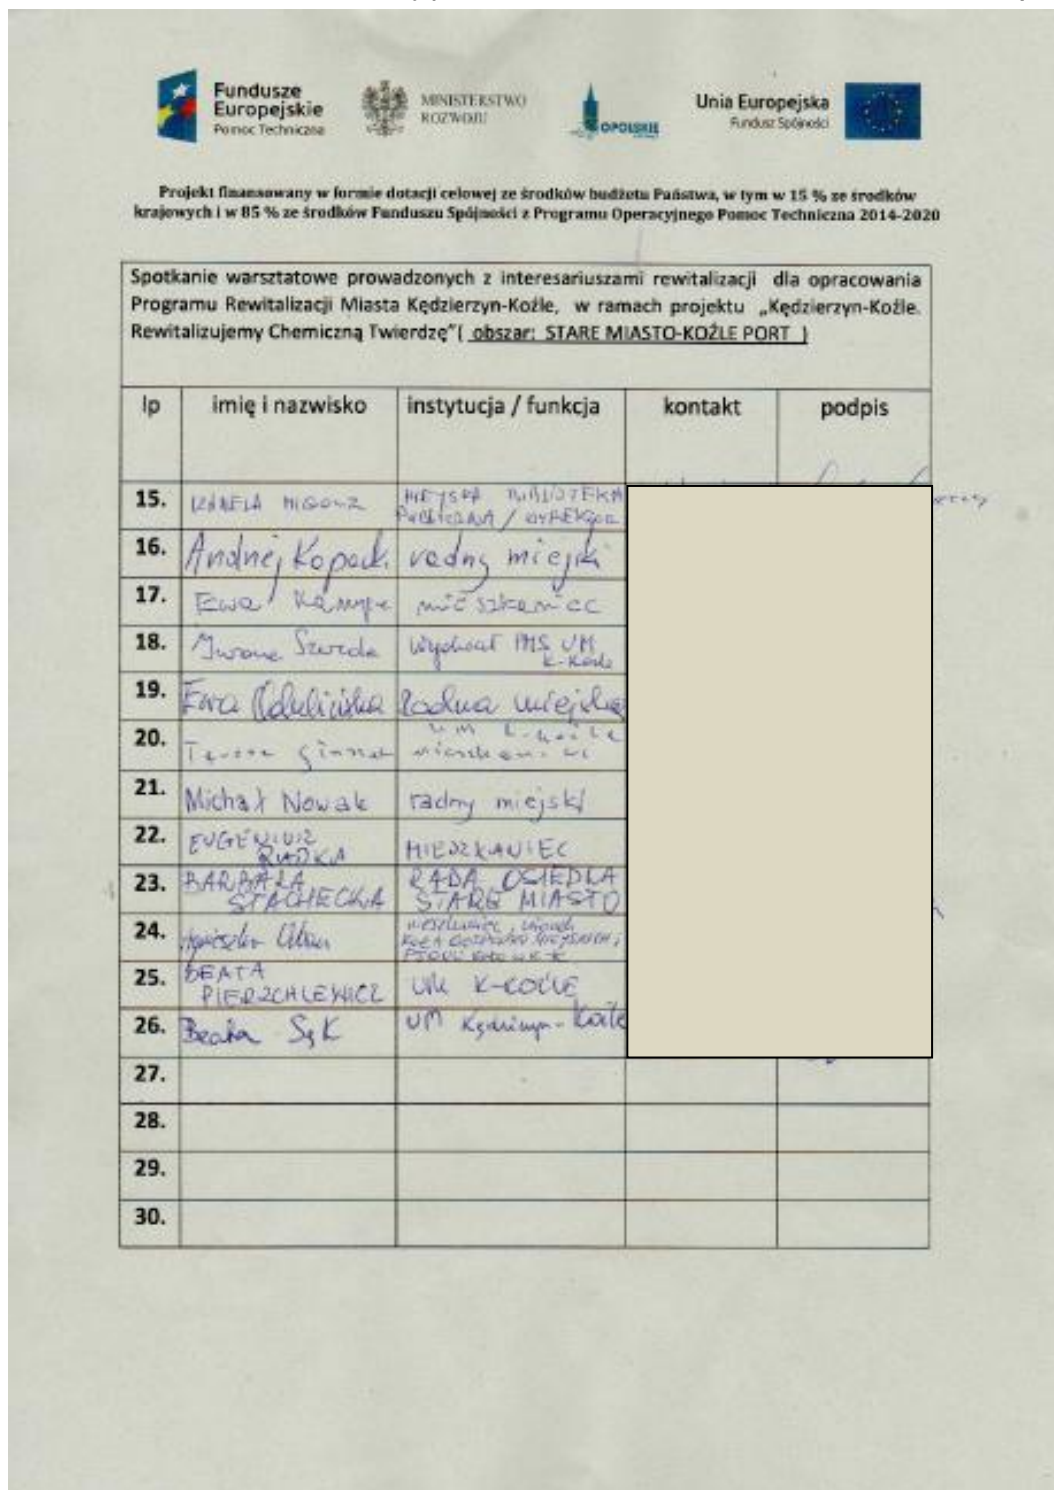 Fundusze
Europejskie
Pomoc Techniczna
MINISTERSTWO
ROZWOJU
OPOLSKIE
Unia Europejska
Fundusz Spójności
Projekt finansowany w formie dotacji celowej ze środków budżetu Państwa, w tym w 15 % ze środków
krajowych i w 85 % ze środków Funduszu Spójności z Programu Operacyjnego Pomoc Techniczna 2014-2020
Spotkanie warsztatowe prowadzonych z interesariuszami rewitalizacji dla opracowania
Programu Rewitalizacji Miasta Kędzierzyn-Koźle, w ramach projektu „Kędzierzyn-Koźle.
Rewitalizujemy Chemiczną Twierdzę"( obszar: STARE MIASTO-KOŹLE PORT )
lp imię i nazwisko instytucja / funkcja kontakt podpis
15. IZABELA MIGOCZ MIEJSKA BIBLIOTEKA
PUBLICZNA / DYREKTOR
16. Andrzej Kopacki radny miejski
17. Ewa mieszkaniec
18. Iwona Szweda Wydział UM
K-Koźle
19. Ewa Radna miejska
20. UM K-Koźle
mieszkaniec
21. Michał Nowak radny miejski
22. EUGENIUSZ
MIESZKANIEC
23. BARBARA RADA OSIEDLA
STACHECKA STARE MIASTO
24. Agnieszka Urban mieszkaniec,
25. BEATA
PIERZCHLEWICZ UM K-KOŹLE
26. Beata Sęk UM Kędzierzyn-Koźle
27.
28.
29.
30.